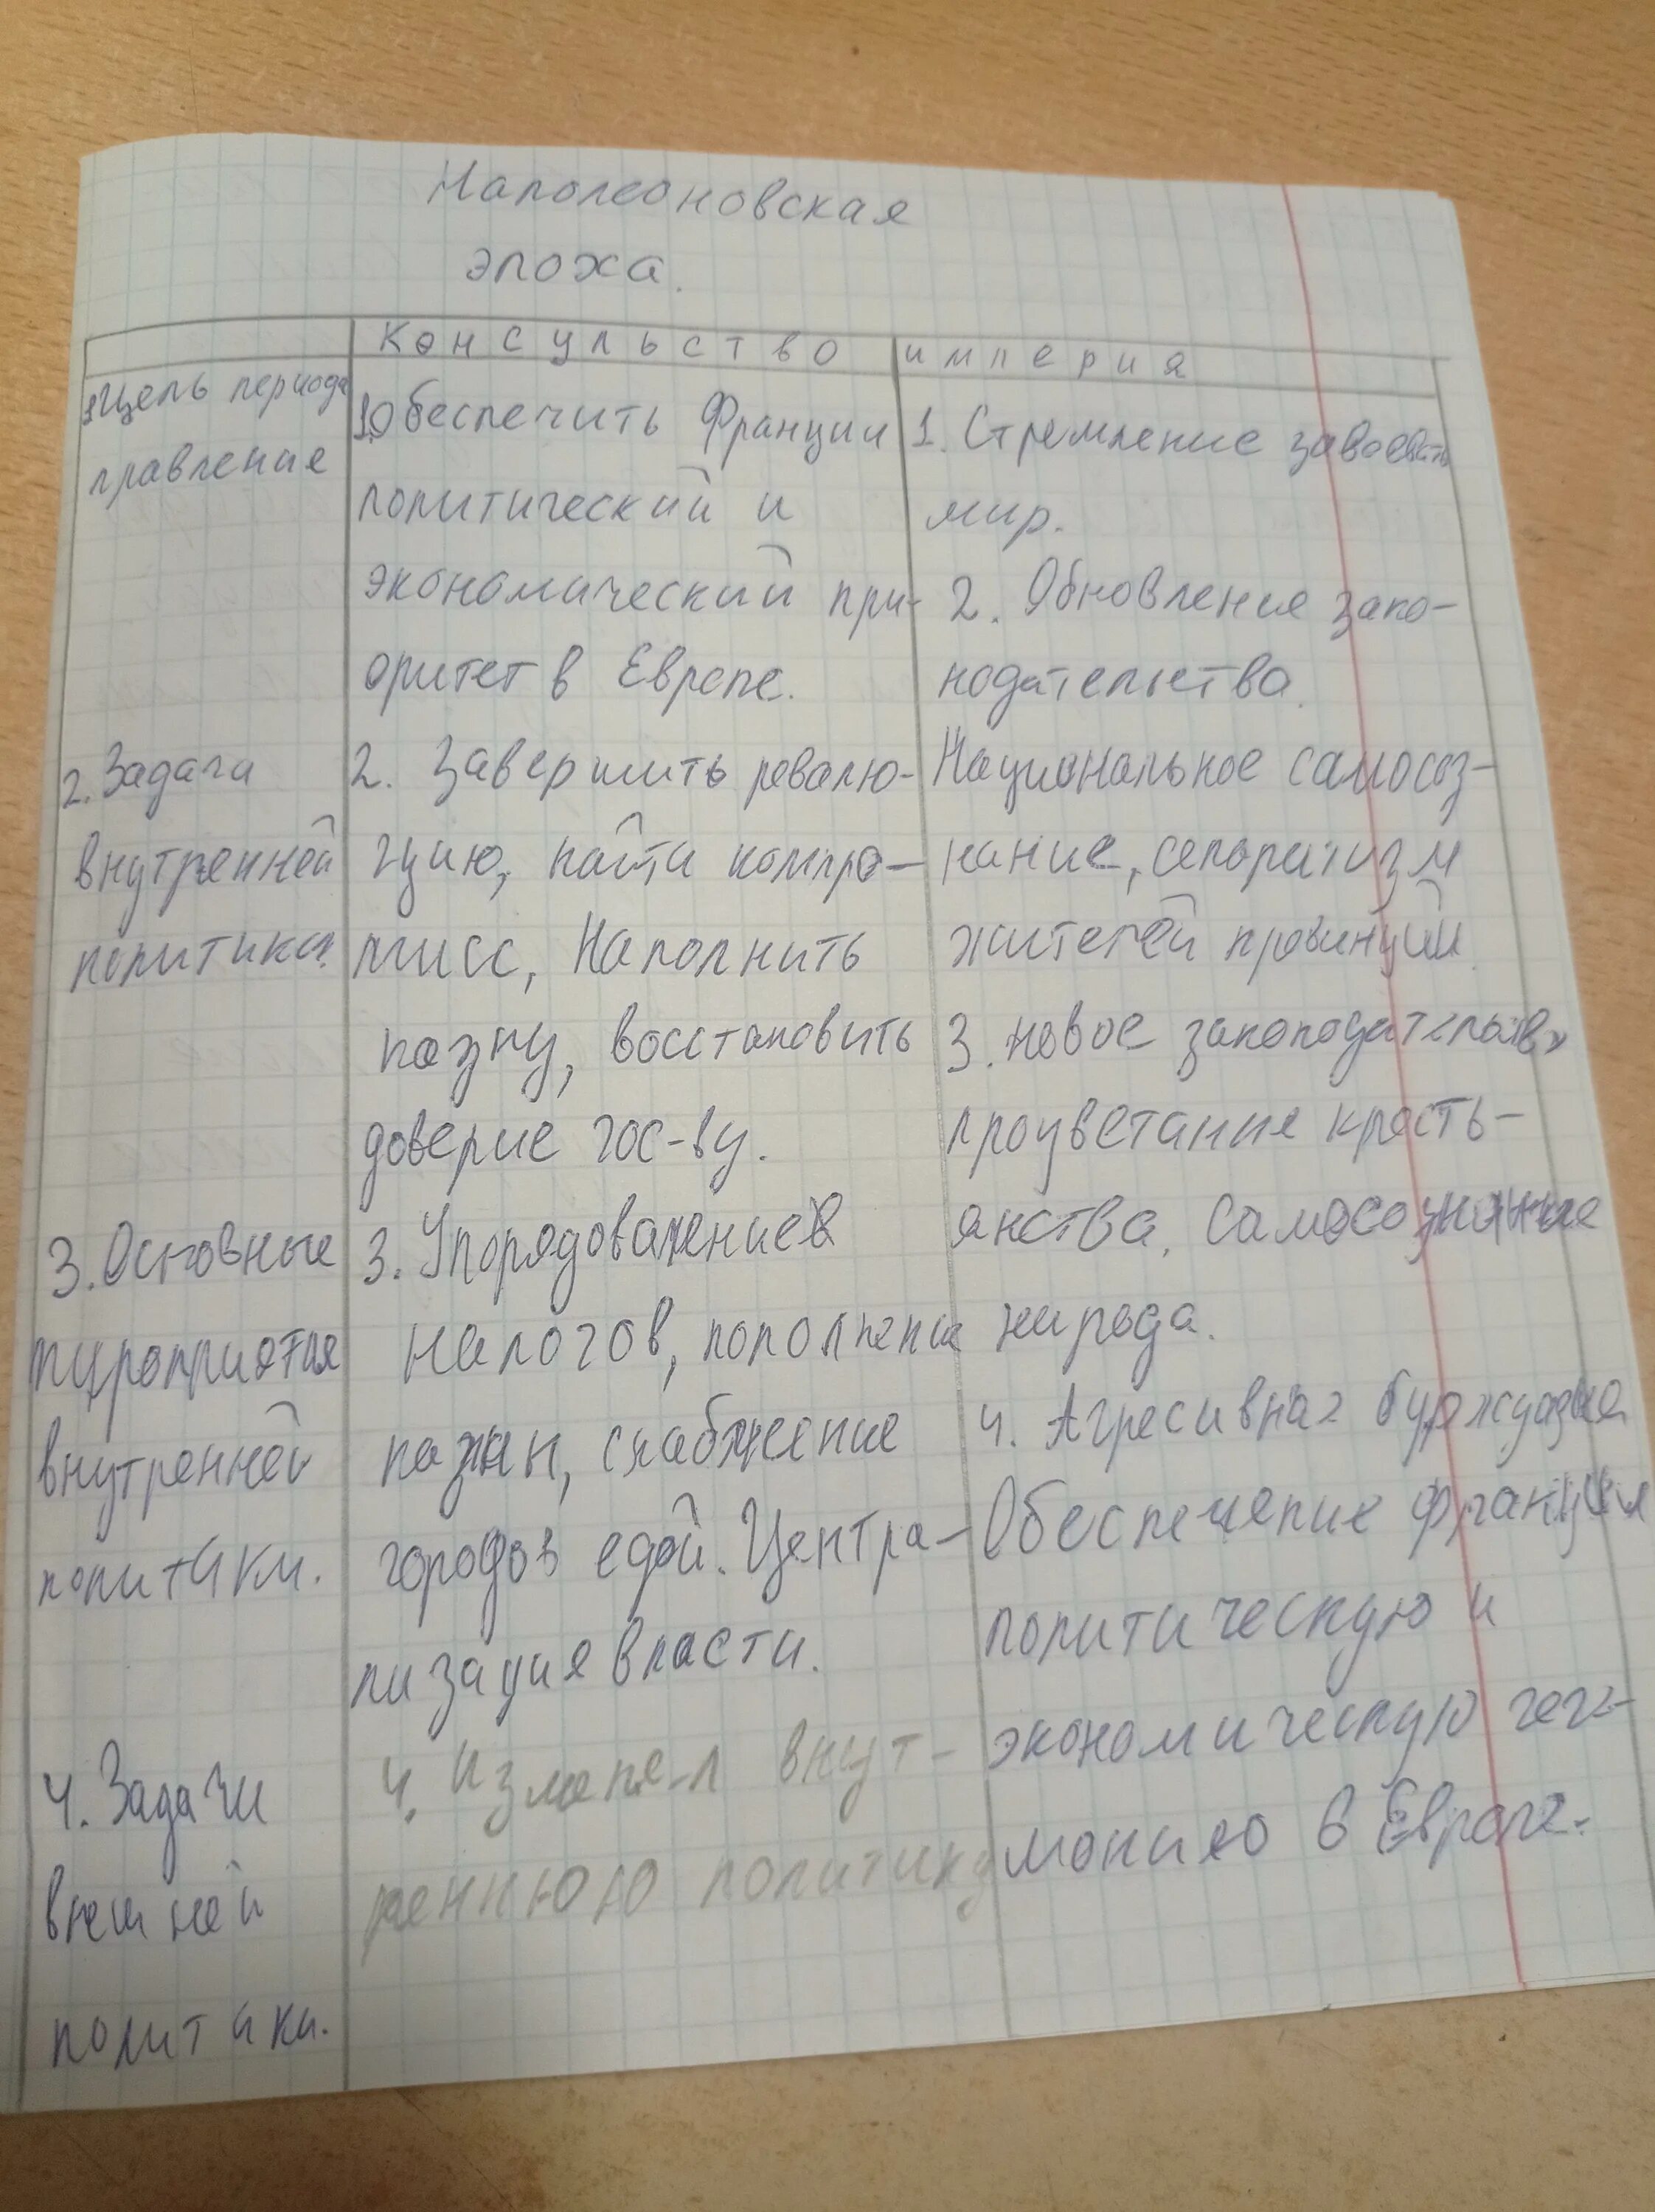 Наполеоновская
эпоха.
Консульство
империя
1. Цель периода
правления
1. Обеспечить Франции
политический и
экономический при-
оритет в Европе.
1. Стремление завоевать
мир.
2. Обновление зако-
нодательства.
2. Задача
внутренней
политики.
2. Завершить револю-
цию, найти компро-
мисс, Наполнить
казну, восстановить
доверие гос-ву.
Национальное самосоз-
нание, сепоратизм
жителей провинций.
3. новое законодательство
процветание кресть-
янства. Самосознание
народа.
3. Основные
мероприятия
внутренней
политики.
3. Упорядовачение
налогов, пополнение
казны, снабжение
городов едой. Центра-
лизация власти.
4. Задачи
внешней
политики.
4. Изменел внут-
реннюю политику
4. Агресивная буржуазия
Обеспечение франции
политическую и
экономическую геге-
монию в Европе.